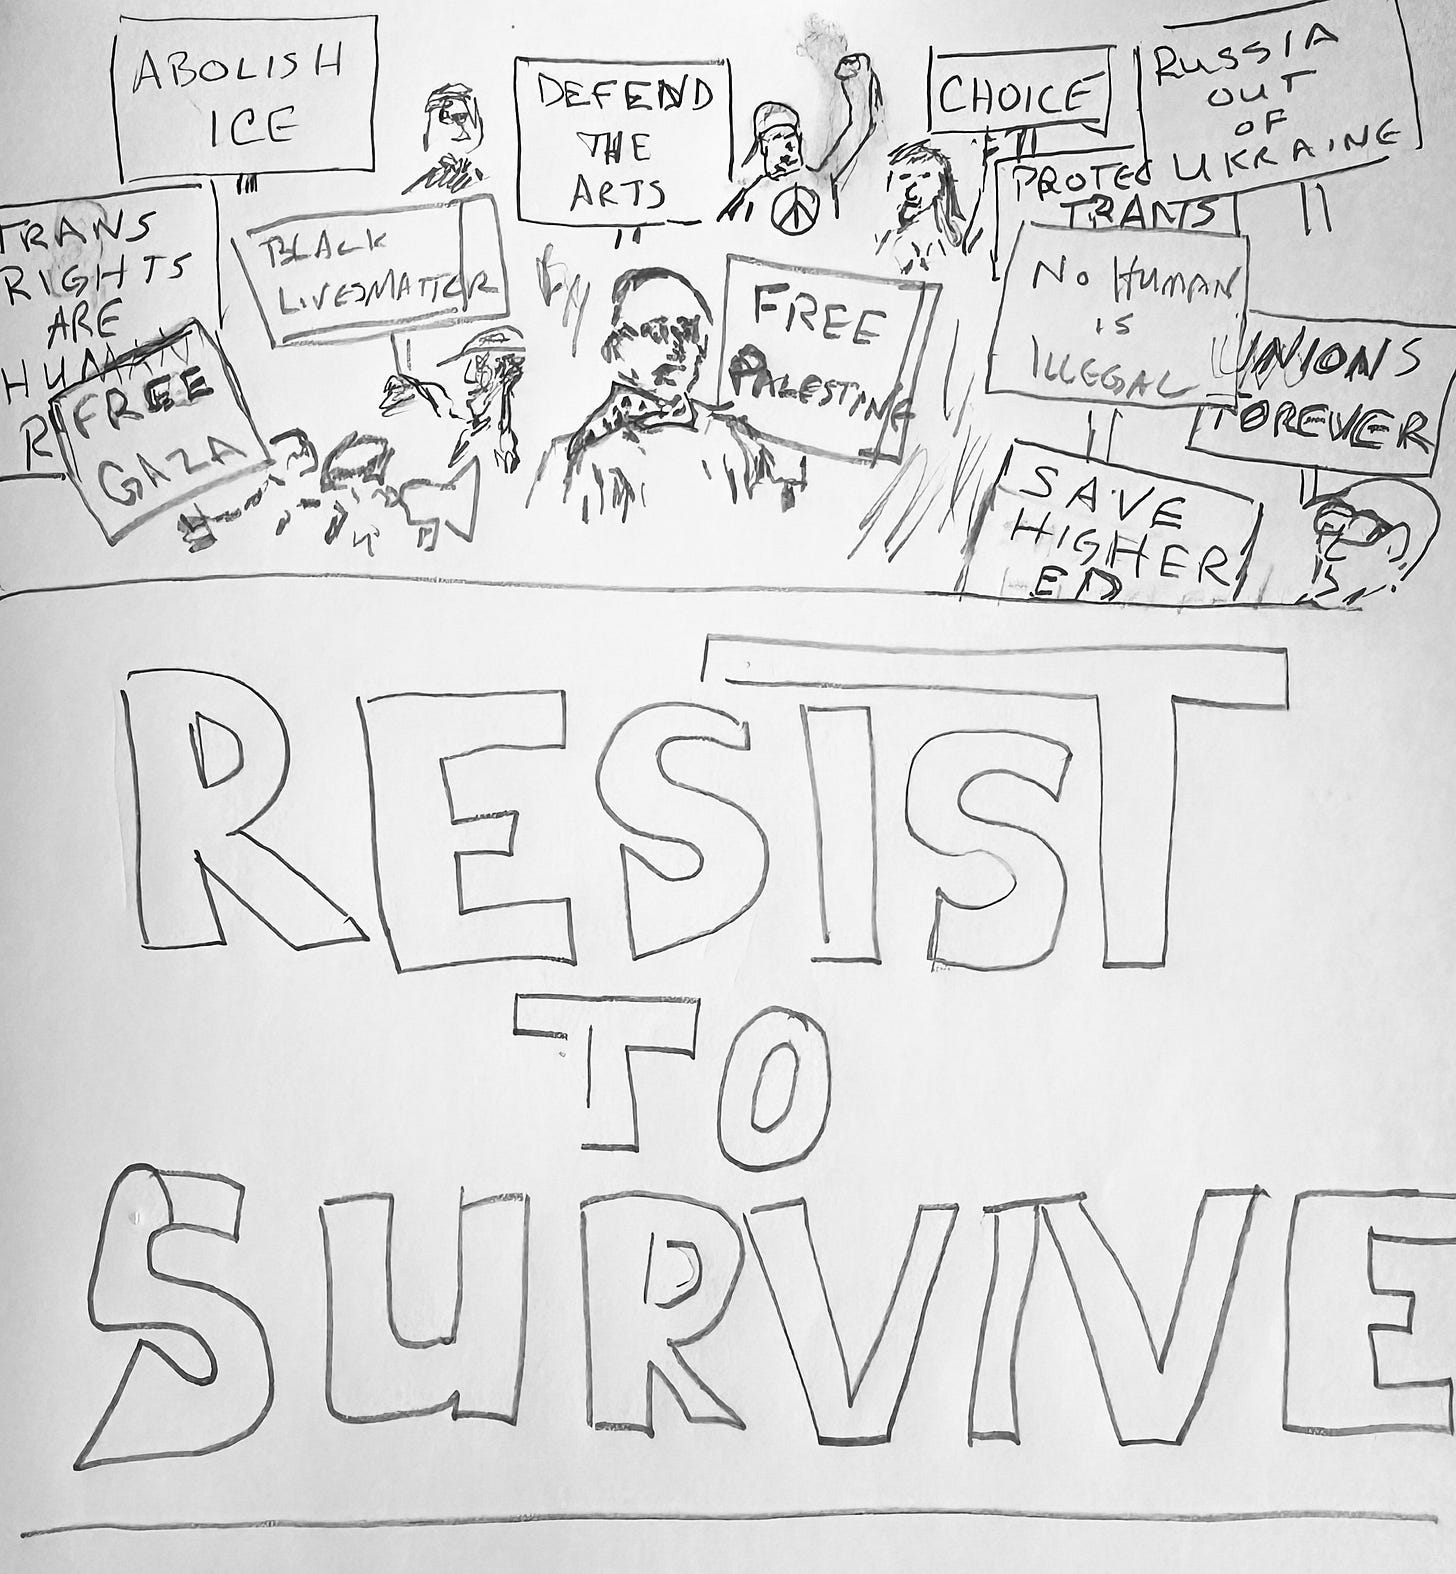 ABOLISH
ICE
DEFEND
THE
ARTS
CHOICE
RUSSIA
OUT
OF
UKRAINE
TRANS
RIGHTS
ARE
HUMAN
R
BLACK
LIVESMATTER
PROTEC
TRANS
FREE
PALESTINE
NO HUMAN
IS
ILLEGAL
UNIONS
FOREVER
FREE
GAZA
SAVE
HIGHER
ED
RESIST
TO
SURVIVE